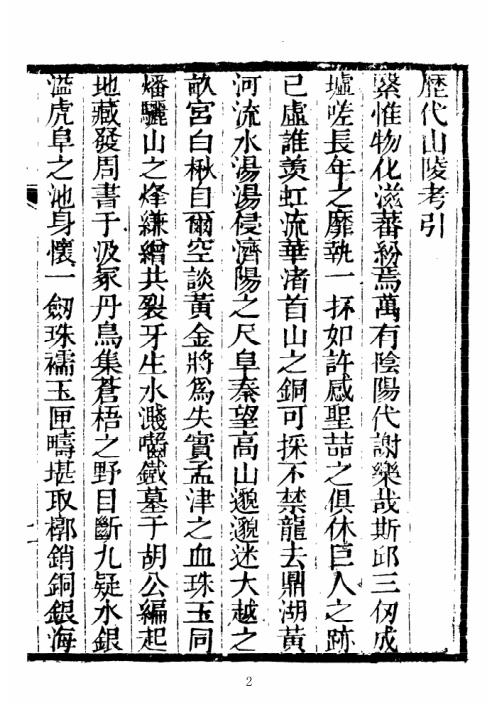 歷代山陵考引
繄惟物化滋蕃紛焉萬有陰陽代謝樂哉斯邱三仞成
墟嗟長年之靡執一抔如許感聖喆之俱休巨人之跡
已虛誰羨虹流華渚首山之銅可採不禁龍去鼎湖黃
河流水湯湯侵濟陽之尺阜秦望高山邈邈迷大越之
畝宮白楸自爾空談黃金將爲失實孟津之血珠玉同
燔驪山之烽縑繒共裂牙生水濺嚙鐵墓于胡公編起
地藏發周書于汲冢丹鳥集蒼梧之野目斷九疑水銀
溢虎阜之池身懷一劒珠襦玉匣疇堪取槨銷銅銀海
2